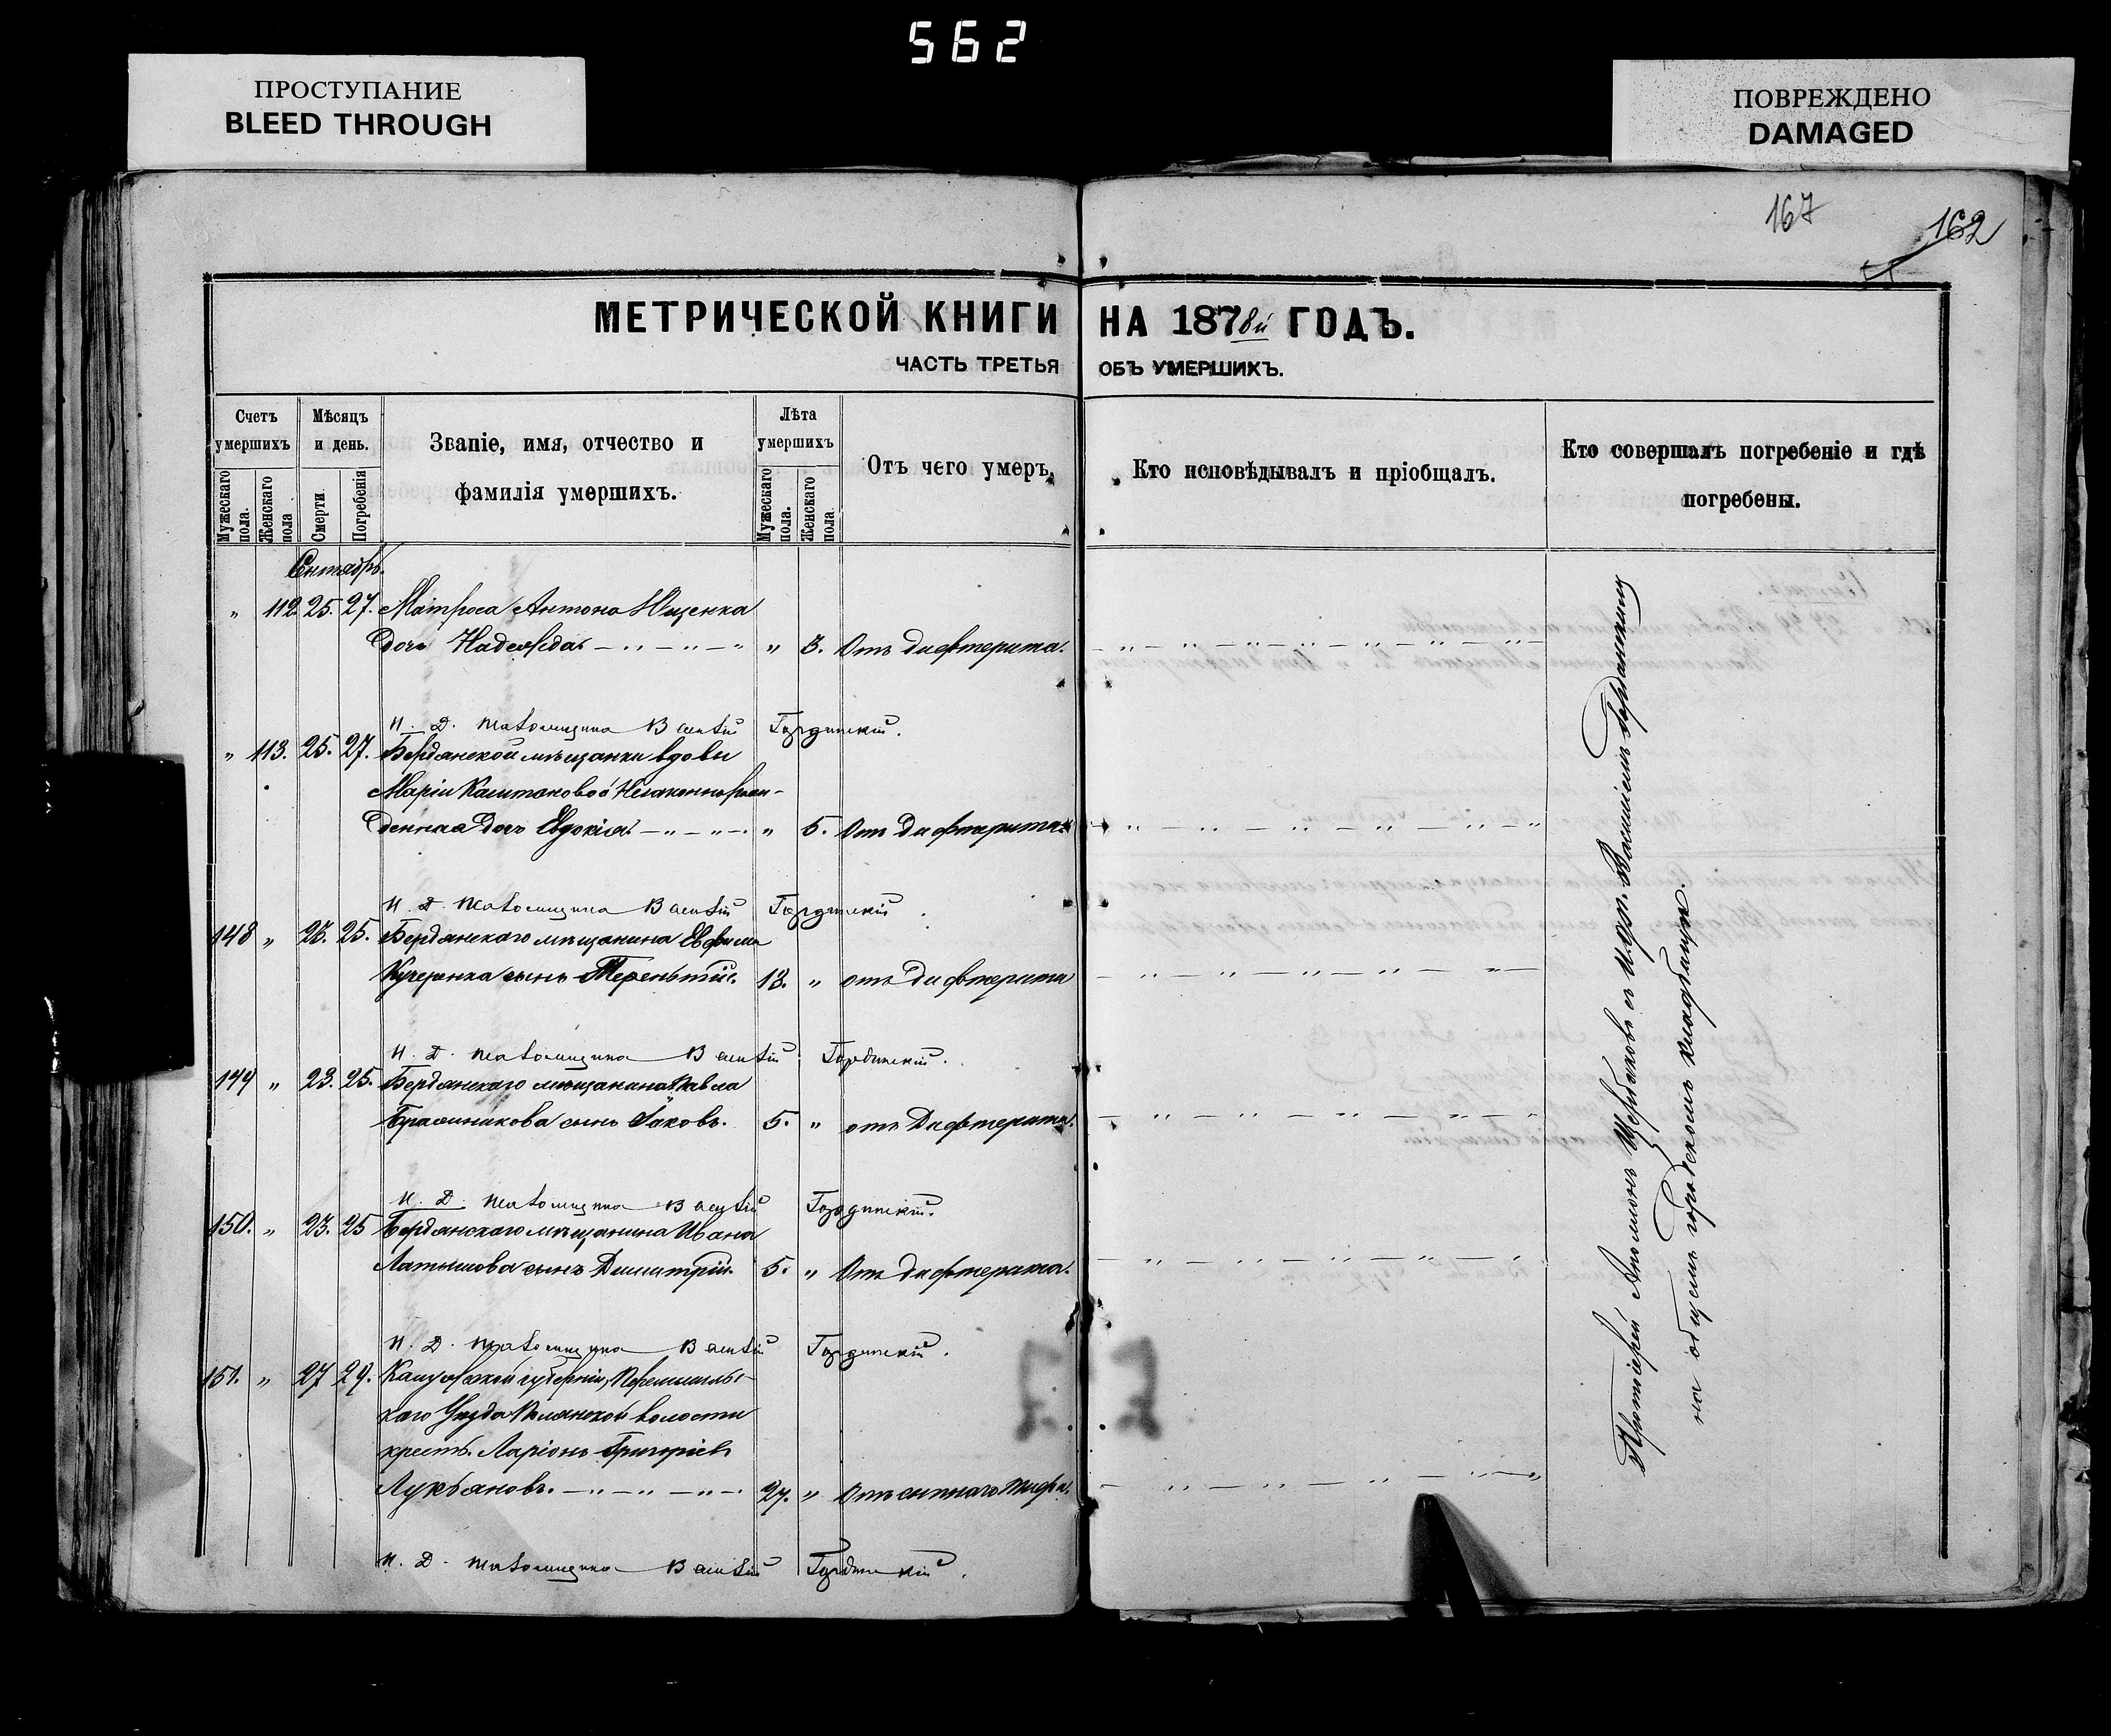 562
ПРОСТУПАНИЕ
BLEED THROUGH
ПОВРЕЖДЕНО
DAMAGED
167
162
МЕТРИЧЕСКОЙ КНИГИ НА 1878й ГОДЪ.
ЧАСТЬ ТРЕТЬЯ ОБЪ УМЕРШИХЪ.
Счетъ умершихъ
Мужескаго пола.
Женскаго пола
Мѣсяцъ и день.
Смерти.
Погребенія
Званіе, имя, отчество и
фамилія умершихъ.
Лѣта умершихъ
Мужескаго пола.
Женскаго пола
Отъ чего умеръ.
Кто исповѣдывалъ и пріобщалъ.
Кто совершалъ погребеніе и гдѣ
погребены.
Сентябрь.
" 112. 25. 27. Матроса Антона Ющенка
дочь Надежда. — " — " — " " 3. Отъ дифтерита.
И. Д. Василій Гординскій.
" 113. 25. 27. Бердянской мѣщанки вдовы
Маріи Каштановой Незаконнорож-
денная дочь Евдокія. — " — " — " 5. Отъ дифтерита.
И. Д. Василій Гординскій
148 " 23. 25. Бердянскаго мѣщанина Евфима
Кучеренка сынъ Терентій. 13. " отъ Дифтерита
И. Д. Василій Гординскій.
149 " 23. 25. Бердянскаго мѣщанина Павла
сынъ Іаковъ. 5. " отъ Дифтерита.
И. Д. Василій Гординскій.
150. " 23. 25 Бердянскаго мѣщанина Ивана
Латышова сынъ Димитрій. 5. " Отъ дифтерита.
И. Д. Василій Гординскій.
151. " 27 29. Калужской губерніи, Перемышльс-
каго Уѣзда волости
крест. Ларіонъ Григоріевъ
Лукьяновъ. — " — " — " — 27. " Отъ сыпнаго тифа.
И. Д. Василій Гординскій.
Протоіерей Щербаковъ съ Василіемъ Гординскимъ
на общемъ городскомъ кладбищѣ.